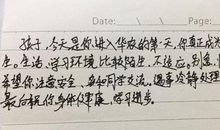 Date:
孩子,今天是你进入华农的第一天,你真正成为
生。生活、学习环境比较陌生,不适应。别急,
希望你注意安全、多和同学交流。遇事冷静处理
最后祝你身体健康,学习进步。